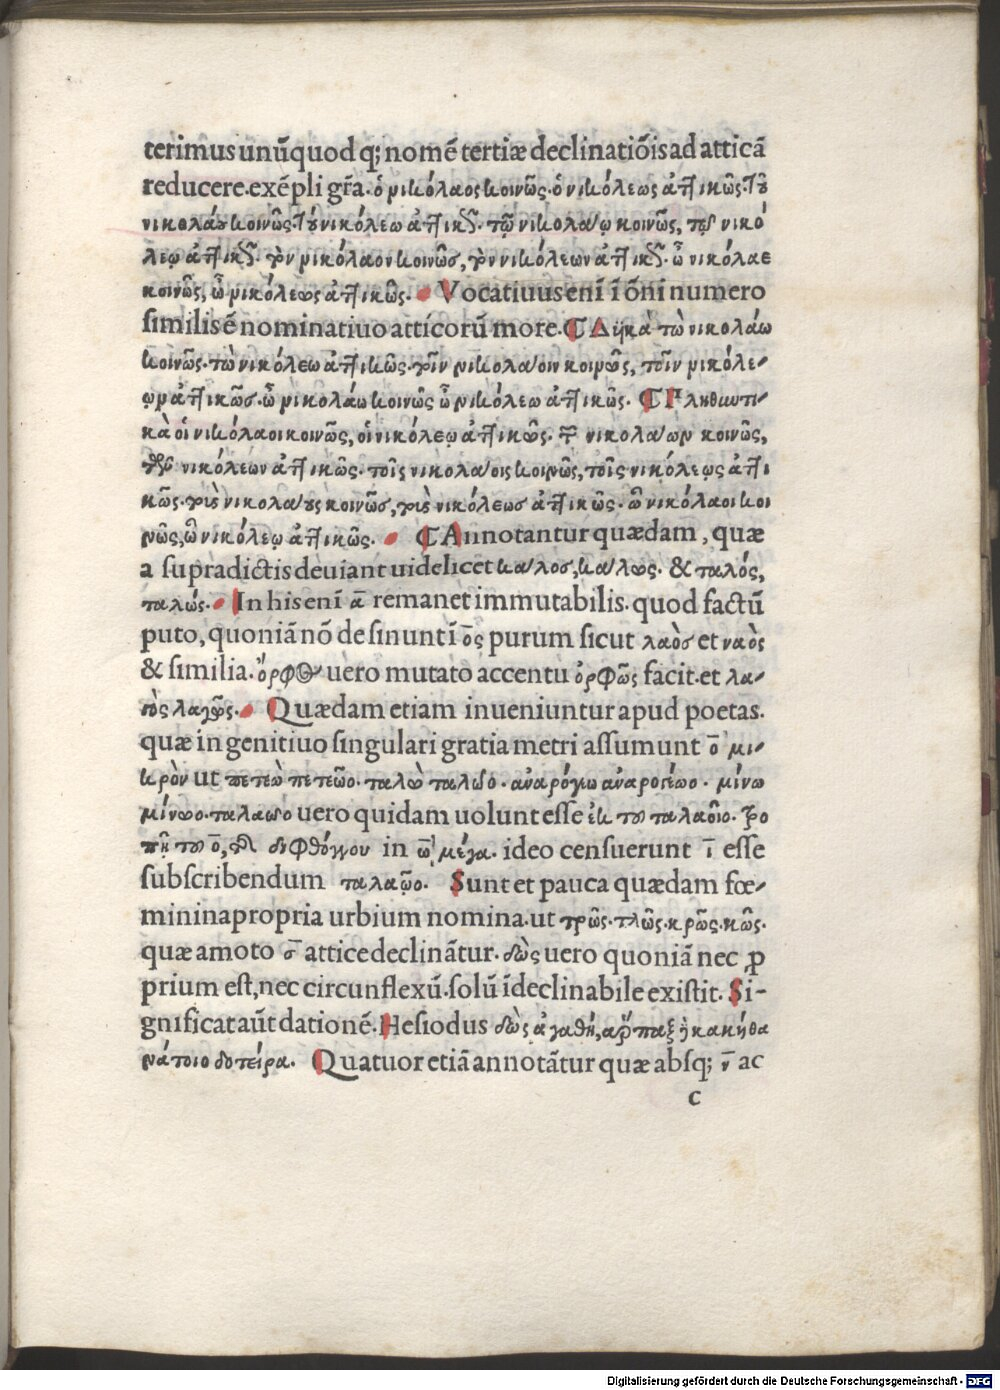 terimus unū quod q; nomē tertiæ declinatiōis ad atticā
reducere.exēpli gr̄a. ὁ νικόλαος κοινῶς. ὁ νικόλεως ἀττικῶς. τοῦ
νικολάου κοινῶς. τοῦ νικόλεω ἀττικῶς. τῷ νικολάῳ κοινῶς, τῷ νικό
λεῳ ἀττικῶς. τὸν νικόλαον κοινῶσ, τὸν νικόλεων ἀττικῶς. ὦ νικόλαε
κοινῶς, ὦ νικόλεως ἀττικῶς. Vocatiuus enī ī ōni numero
similis ē nominatiuo atticorū more. Δϋικὰ τὼ νικολάω
κοινῶς. τὼ νικόλεω ἀττικῶς. τοῖν νικολάοιν κοινῶς, τοῖν νικόλε-
ῳν ἀττικῶσ. ὦ νικολάω κοινῶς ὦ νικόλεω ἀττικῶς. Πληθυντι-
κὰ οἱ νικόλαοι κοινῶς, οἱ νικόλεῳ ἀττικῶς. τῶν νικολάων κοινῶς,
τῶν νικόλεων ἀττικῶς. τοῖς νικολάοις κοινῶς, τοῖς νικόλεῳς ἀττι
κῶς. τοὺς νικολάους κοινῶσ, τοὺς νικόλεωσ ἀττικῶς. ὦ νικόλαοι κοι
νῶς, ὦ νικόλεῳ ἀττικῶς. Annotantur quædam, quæ
a supradictis deuiant uidelicet κάλοσ, κάλως. & ταλός,
ταλώς. In his enī ā remanet immutabilis. quod factū
puto, quoniā nō desinunt ī ος purum sicut λαὸσ et ναὸς
& similia. ὄρφος uero mutato accentu ὀρφῶς facit.et λα-
γὸς λαγῶς. Quædam etiam inueniuntur apud poetas.
quæ in genitiuo singulari gratia metri assumunt ō μι-
κρὸν ut πετεὼ πετεῶο. ταλὼ ταλώο. ἀνδρόγεω ἀνδρογέωο. μίνω
μίνωο. ταλαωο uero quidam uolunt esse ἐκ τοῦ ταλαοῖο. τρο
πῇ τοῦ ο, διφθόγγου in ω μέγα. ideo censuerunt ī esse
subscribendum ταλαῷο. Sunt et pauca quædam fœ-
minina propria urbium nomina. ut τρῶς. τλῶς. κρῶς. κῶς.
quæ amoto σ attice declinātur. δὼς uero quoniā nec ꝓ
prium est, nec circunflexū. solū īdeclinabile existit. Si-
gnificat aūt dationē. Hesiodus δὼς ἀγαθή, ἅρπαξ ἡ κακή θα
νάτοιο δοτείρα. Quatuor etiā annotātur quæ absq; ν ac
c
Digitalisierung gefördert durch die Deutsche Forschungsgemeinschaft - DFG